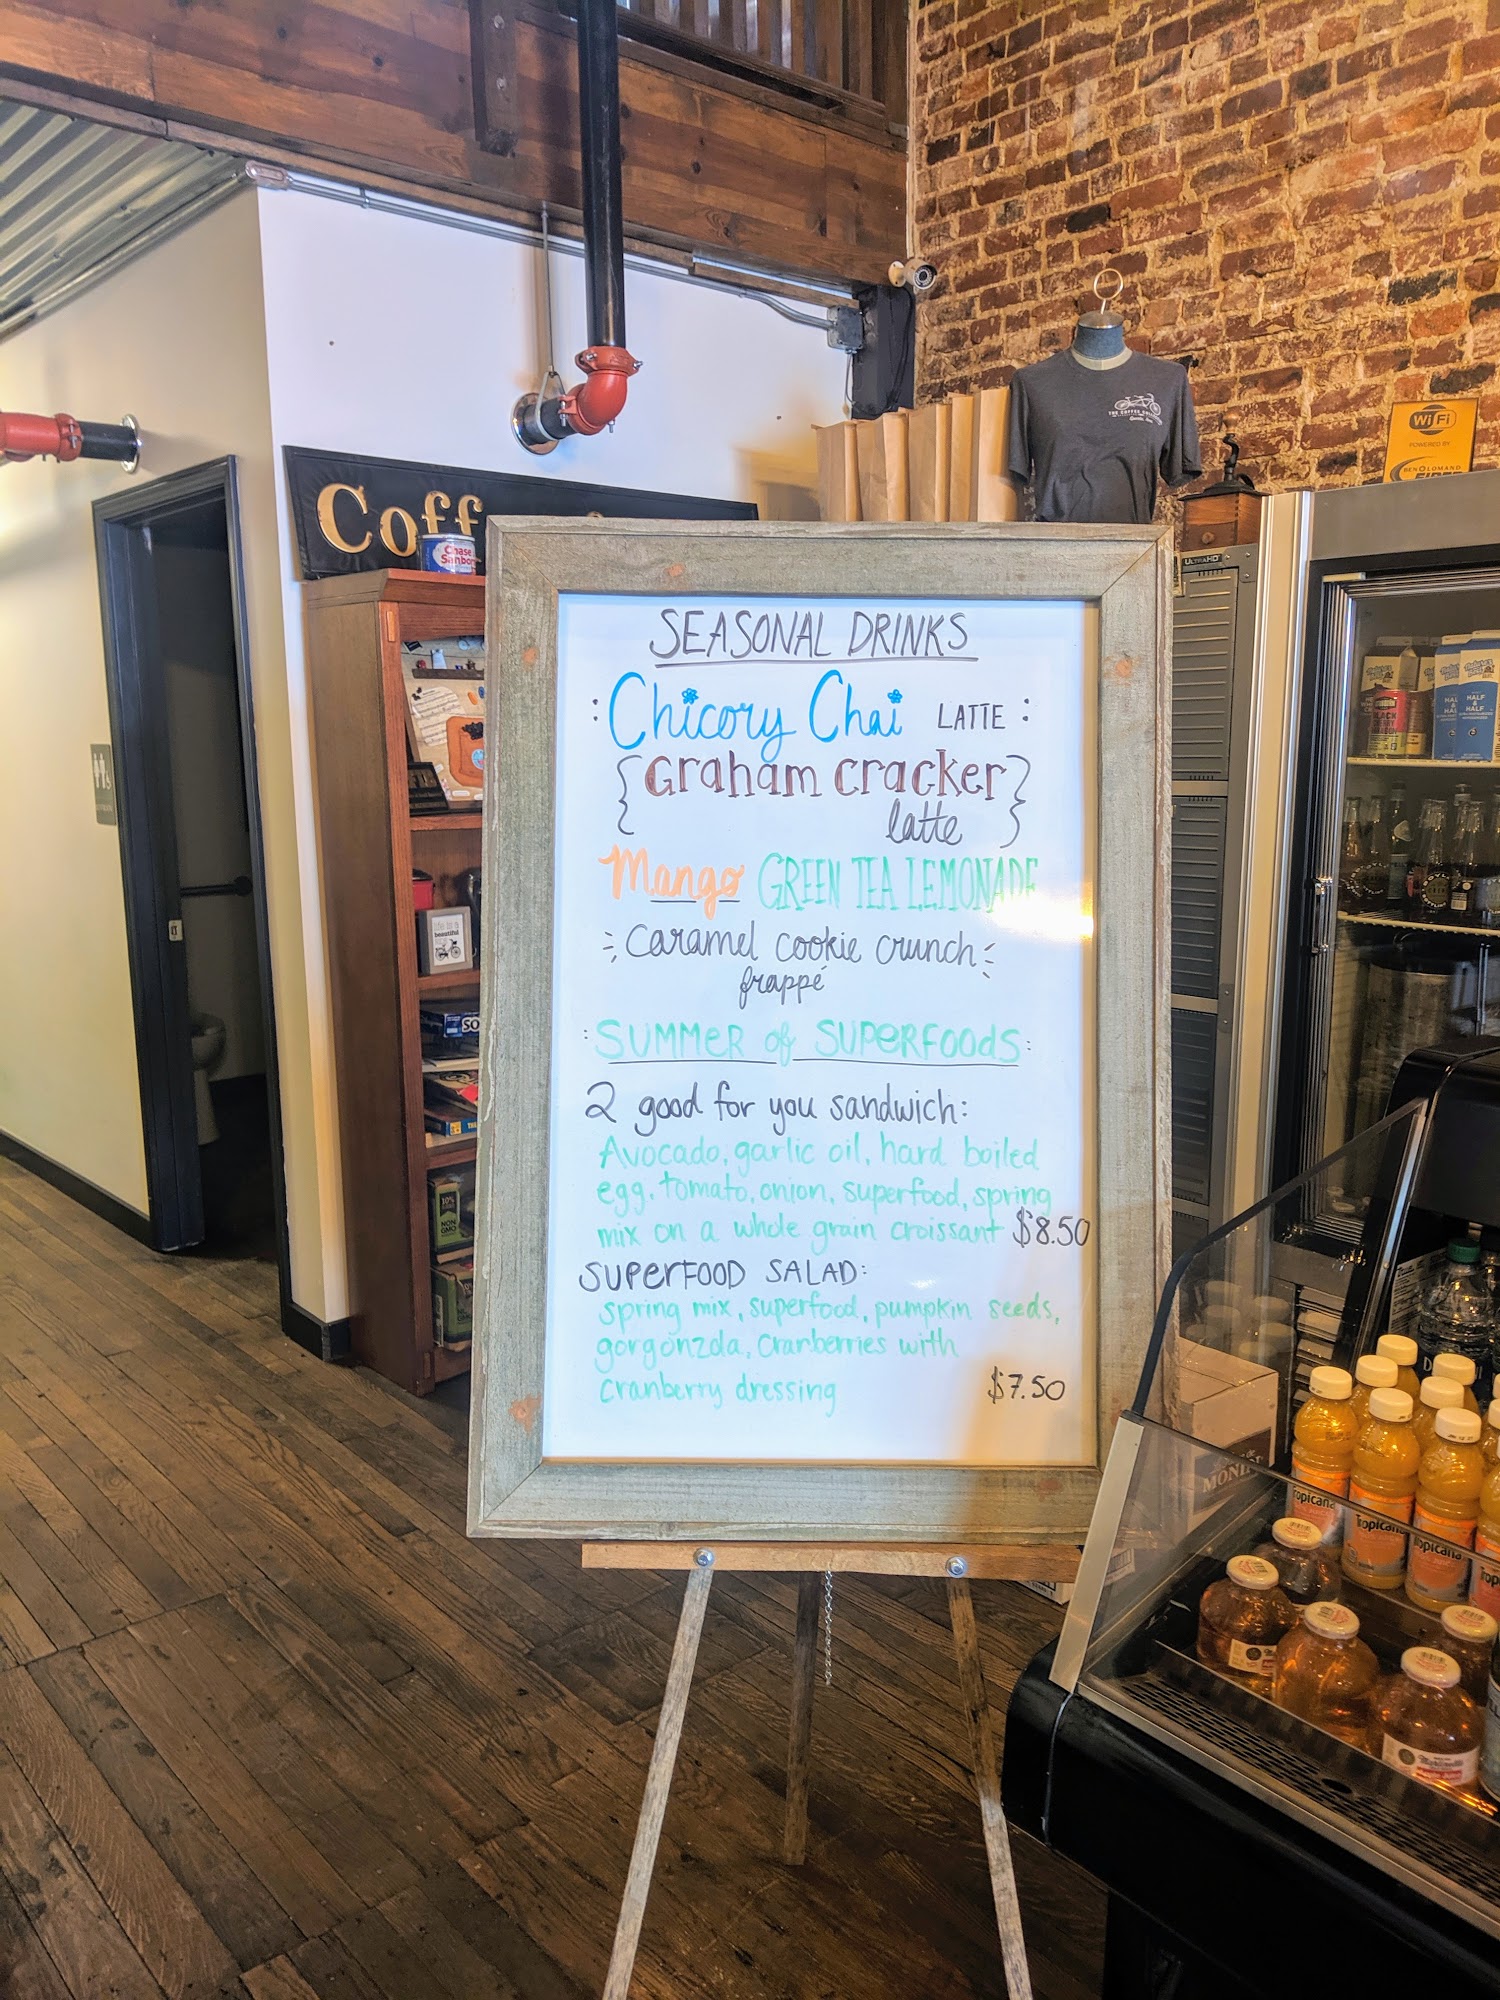 SEASONAL DRINKS
: Chicory Chai LATTE :
{ Graham cracker }
latte
Mango GREEN TEA LEMONADE
Caramel cookie crunch
frappé
: SUMMER of SUPERFOODS :
2 good for you sandwich:
Avocado, garlic oil, hard boiled
egg, tomato, onion, superfood, spring
mix on a whole grain croissant $8.50
SUPERFOOD SALAD:
spring mix, superfood, pumpkin seeds,
gorgonzola, cranberries with
cranberry dressing $7.50
Coff
Chase
Sanborn
life is a
beautiful
NON
GMO
THE COFFEE
WiFi
POWERED BY
BEN LOMAND
ULTRAHD
HALF
&
HALF
MONIN
Tropicana
Tropicana
Tropicana